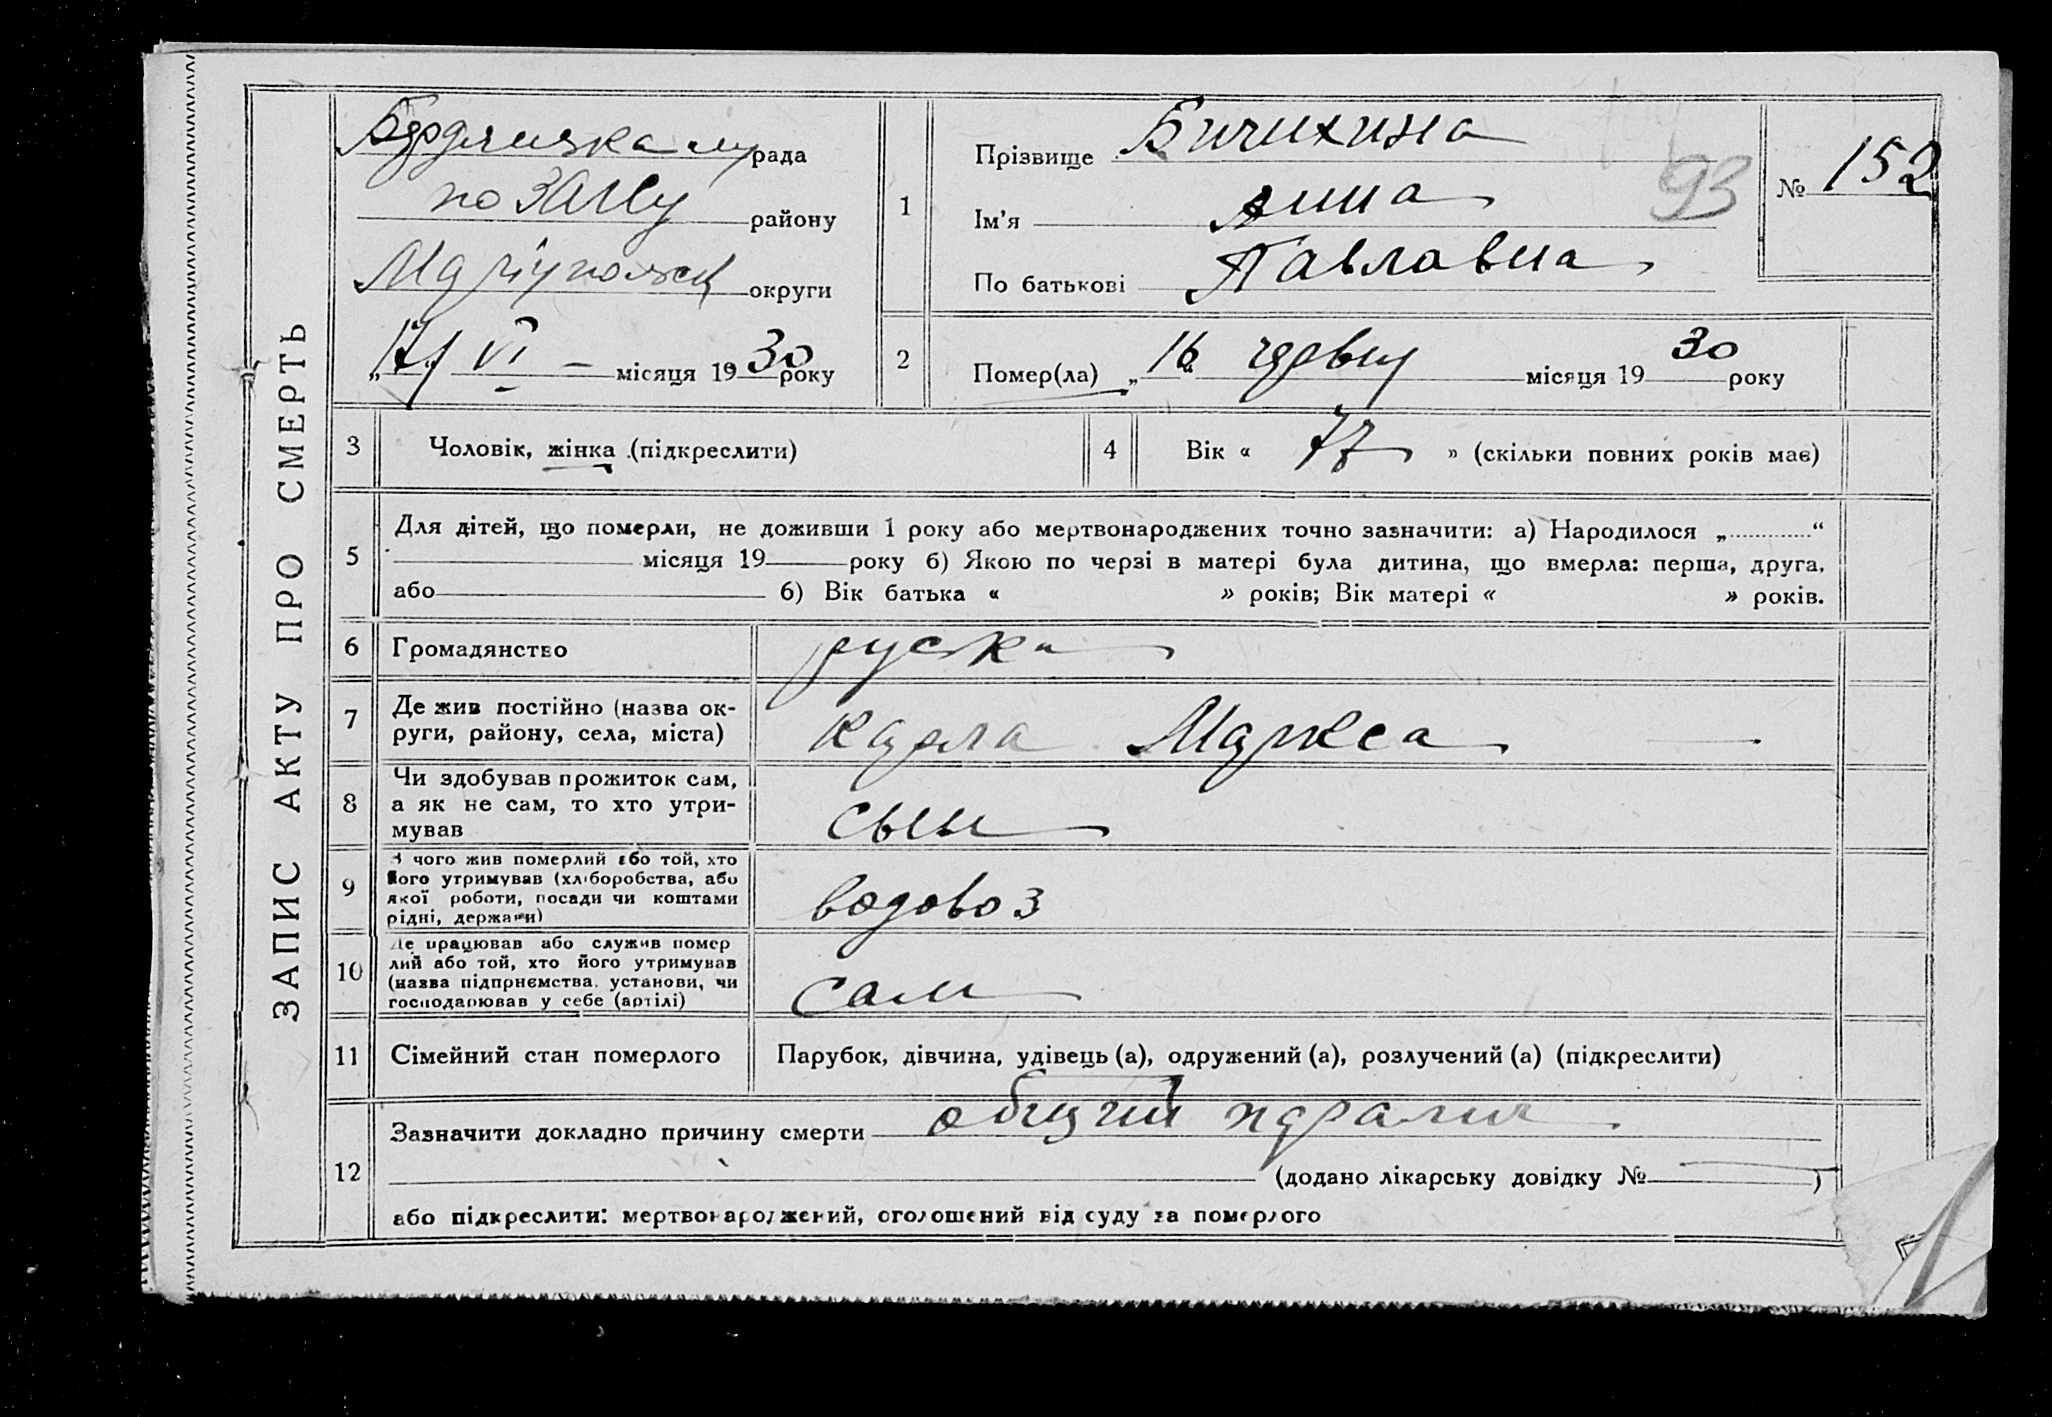 ЗАПИС АКТУ ПРО СМЕРТЬ
рада
по ЗАГСу району
Маріупольск округи
„17" VI місяця 1930 року
1
Прізвище Бичихина
Ім'я Анна
По батькові Павловна
93
№ 152
2
Помер(ла) „16" червня місяця 1930 року
3
Чоловік, жінка (підкреслити)
4
Вік « 77 » (скільки повних років має)
5
Для дітей, що померли, не доживши 1 року або мертвонароджених точно зазначити: а) Народилося „ “
місяця 19 року б) Якою по черзі в матері була дитина, що вмерла: перша, друга,
або б) Вік батька « » років; Вік матері « » років.
6
Громадянство руска
7
Де жив постійно (назва ок-
руги, району, села, міста)
Карла Маркса
8
Чи здобував прожиток сам,
а як не сам, то хто утри-
мував
сын
9
З чого жив померлий або той, хто
його утримував (хліборобства, або
якої роботи, посади чи коштами
рідні, держави)
водовоз
10
Де працював або служив помер
лий або той, хто його утримував
(назва підпрнємства, установи, чи
господарював у себе (артілі)
сам
11
Сімейний стан померлого
Парубок, дівчина, удівець (а), одружений (а), розлучений (а) (підкреслити)
12
Зазначити докладно причину смерти общий паралич
(додано лікарську довідку № )
або підкреслити: мертвонароджений, оголошений від суду за померлого